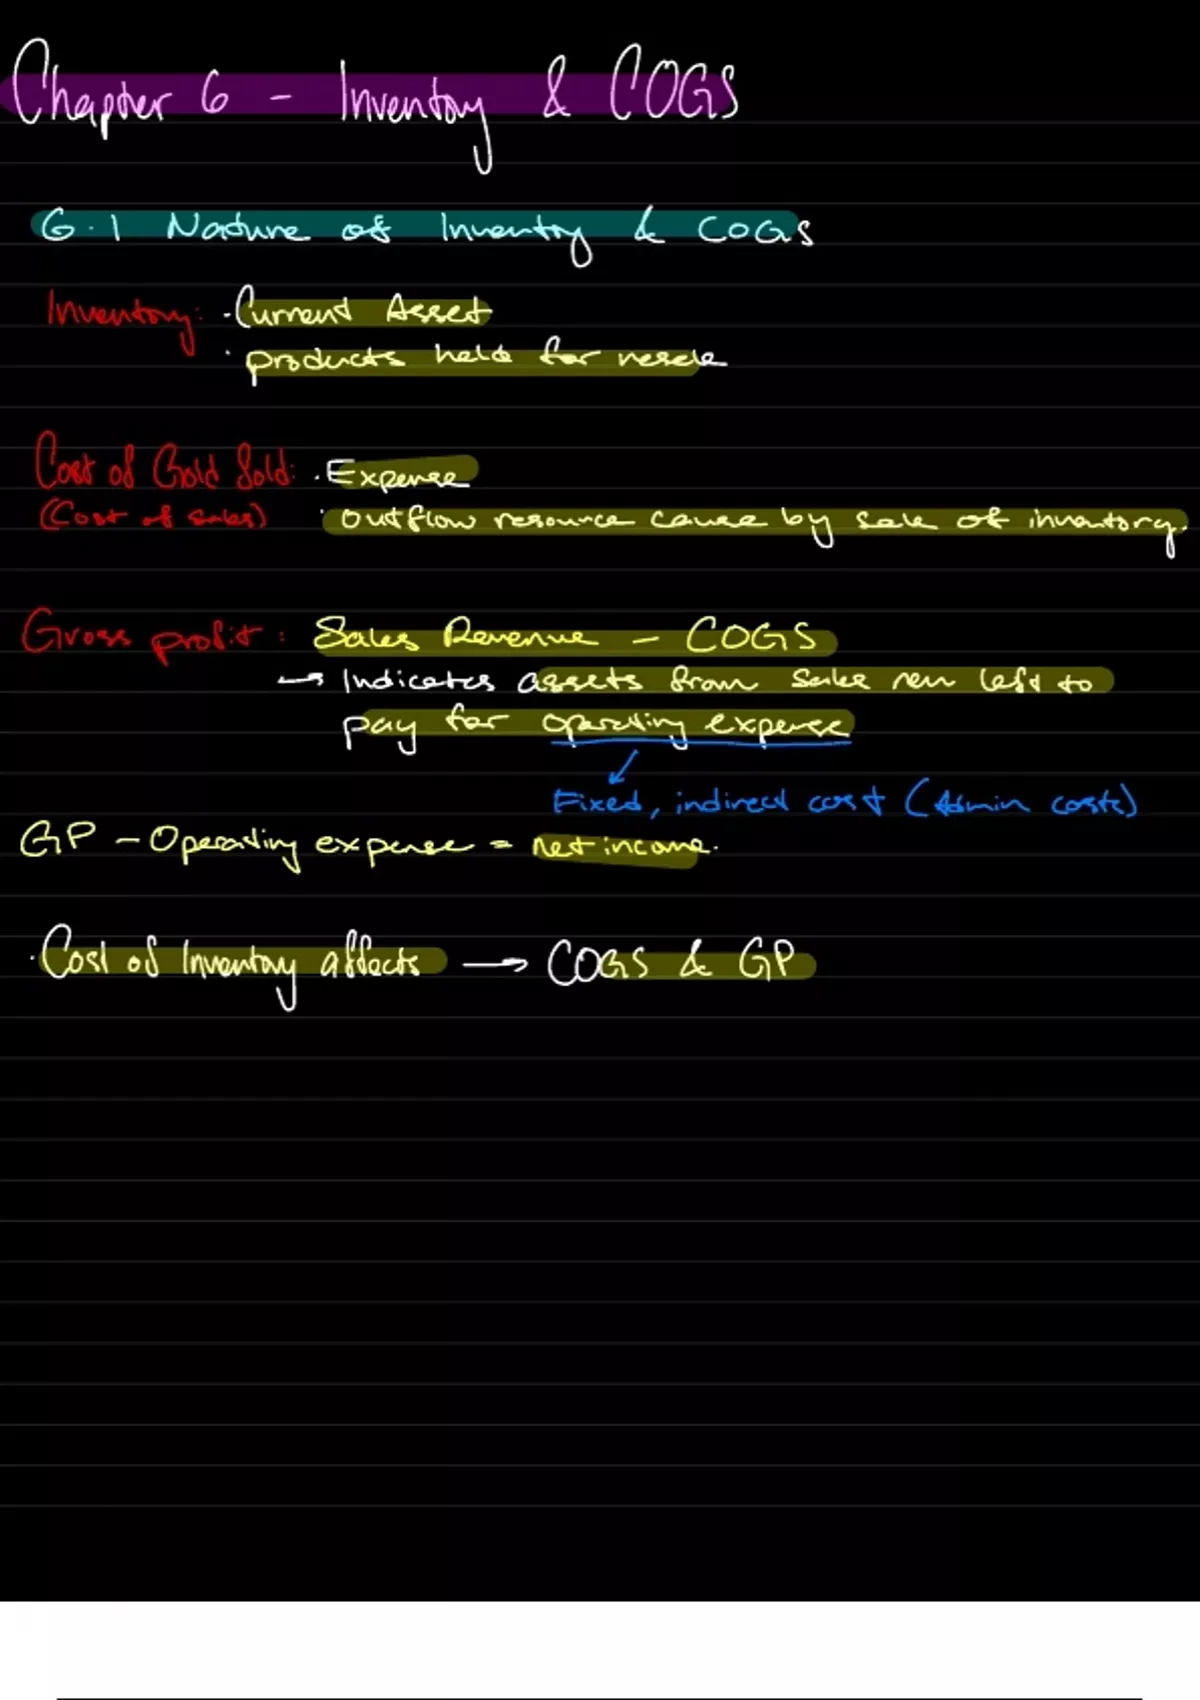 Chapter 6 - Inventory & COGS
6.1 Nature of Inventory & COGS
Inventory: · Current Asset
· products held for resale
Cost of Gold Sold: · Expense
(Cost of sales) · outflow resource cause by sale of inventory.
Gross profit: Sales Revenue - COGS
→ Indicates assets from sales rev left to
pay for operating expense
↓
Fixed, indirect cost (Admin costs)
GP - Operating expense = net income.
· Cost of Inventory affects → COGS & GP